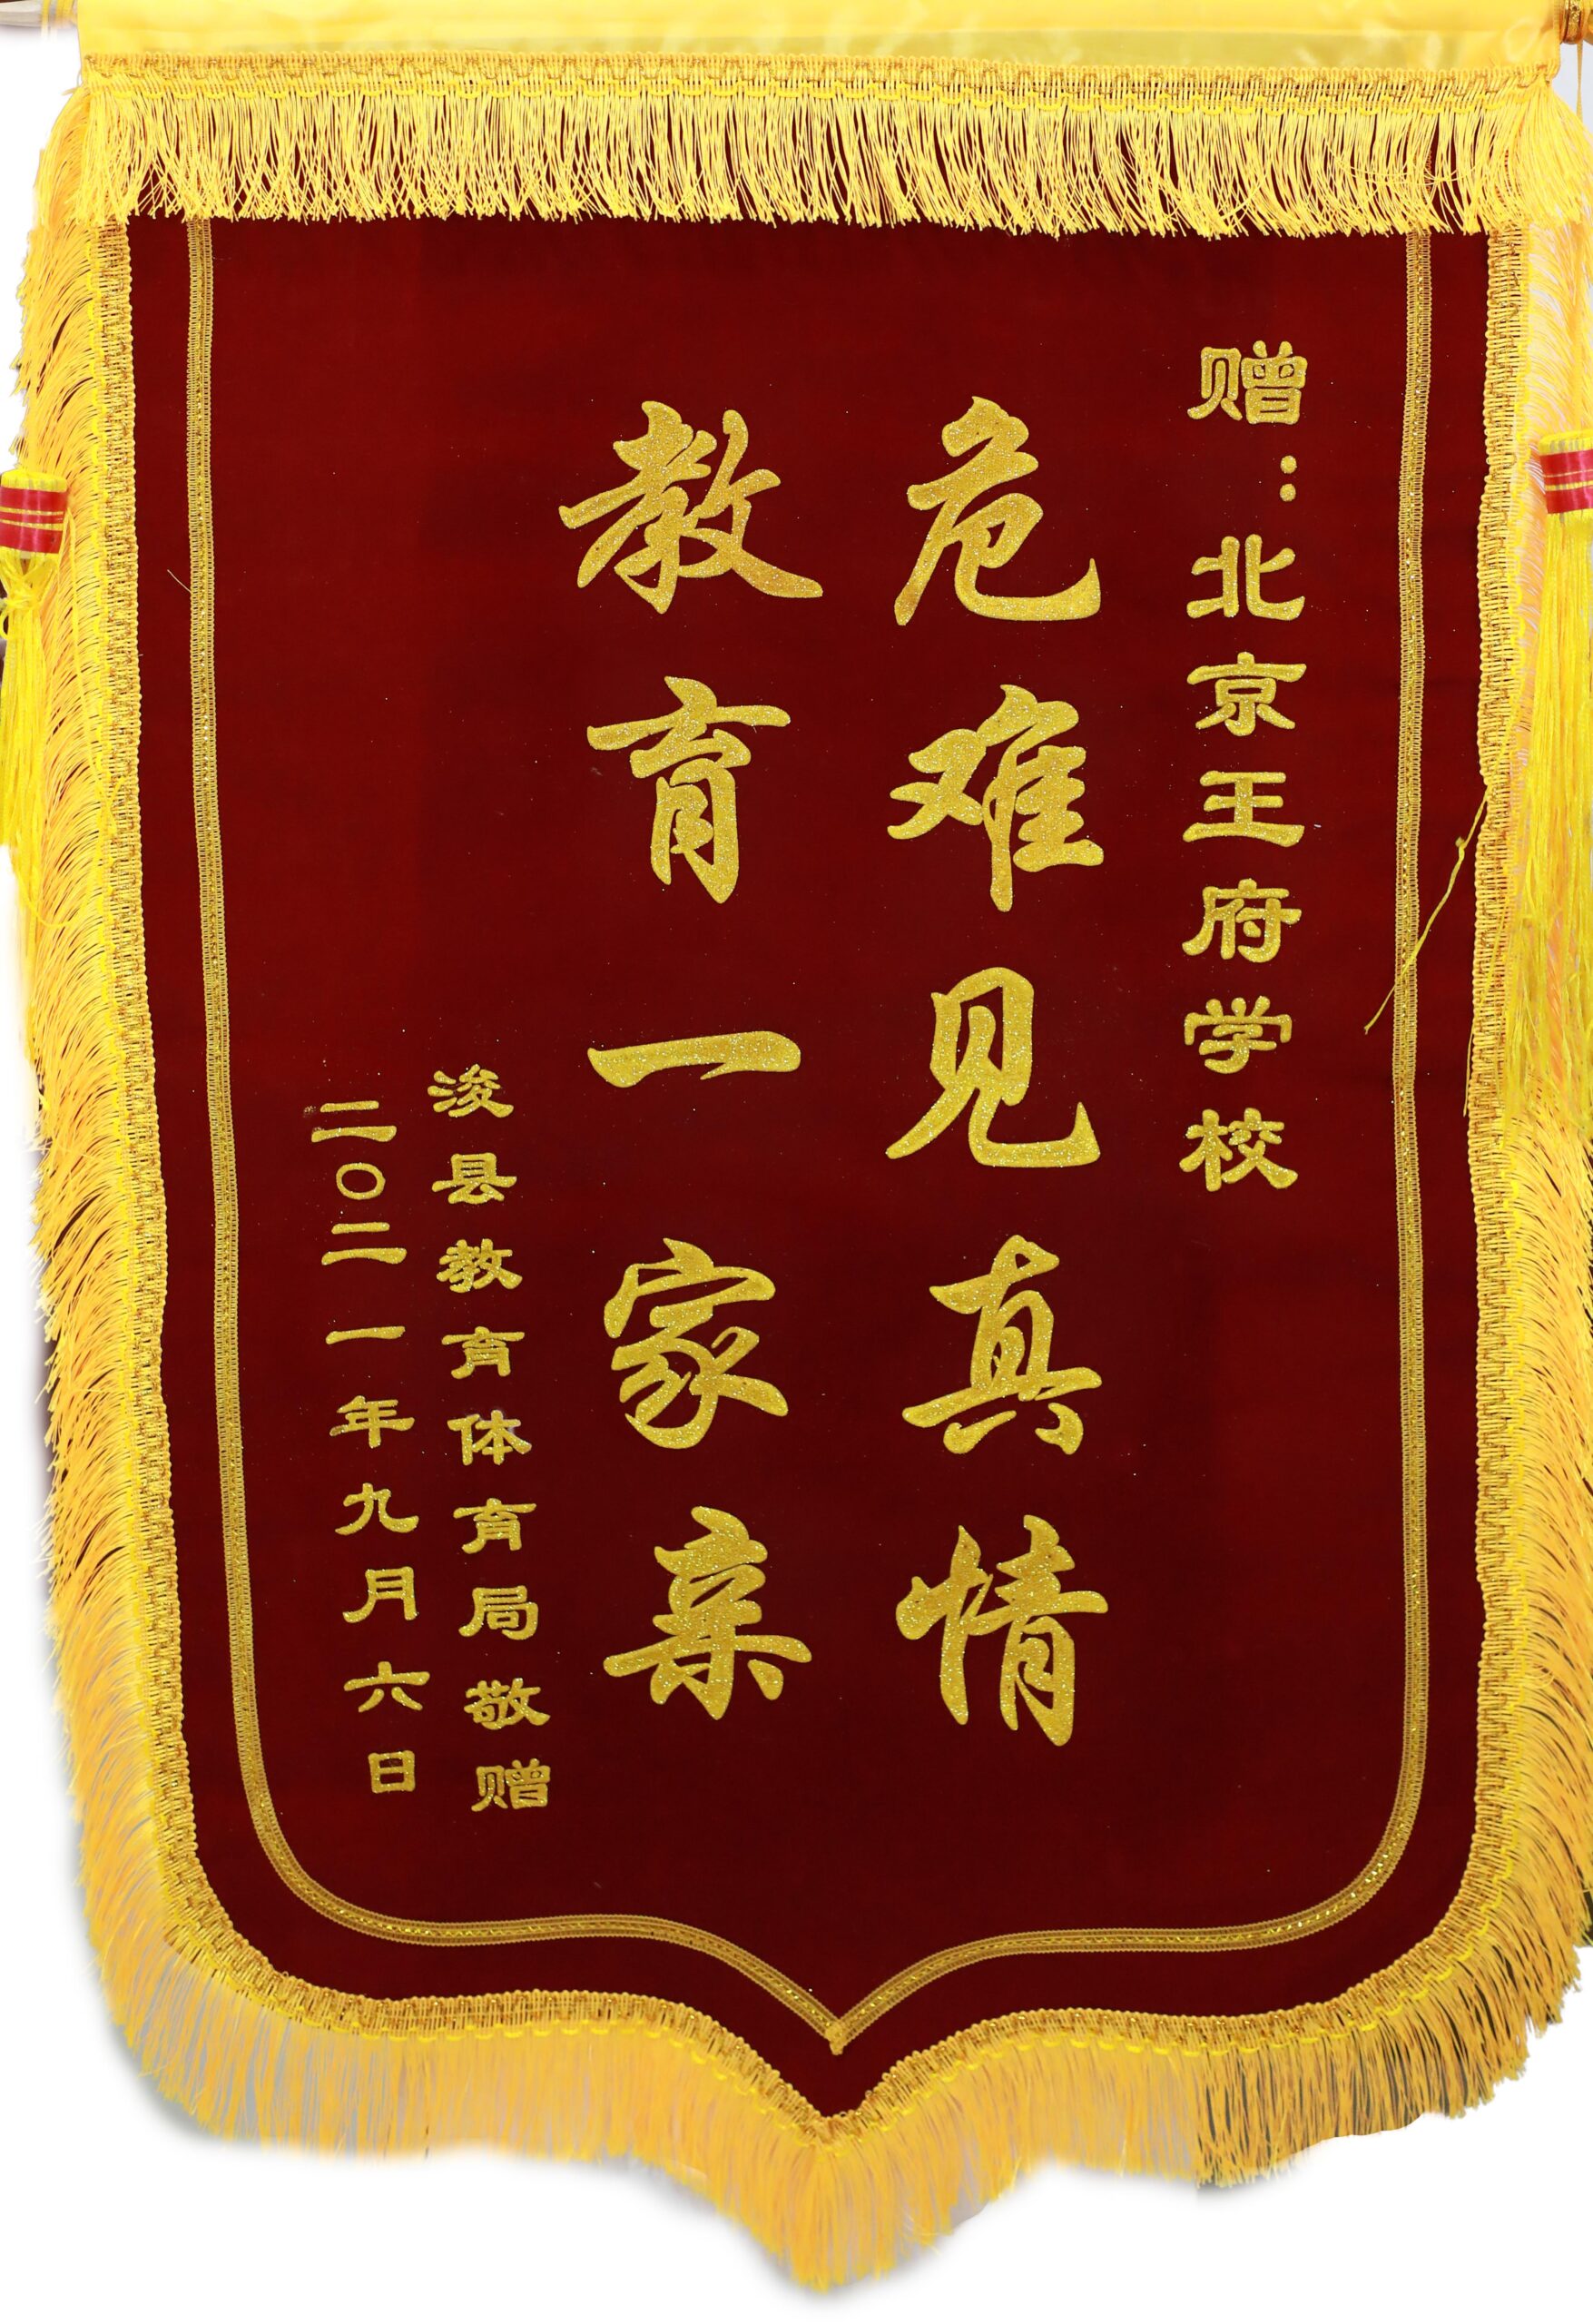 赠：北京王府学校
危难见真情
教育一家亲
浚县教育体育局敬赠
二〇二一年九月六日